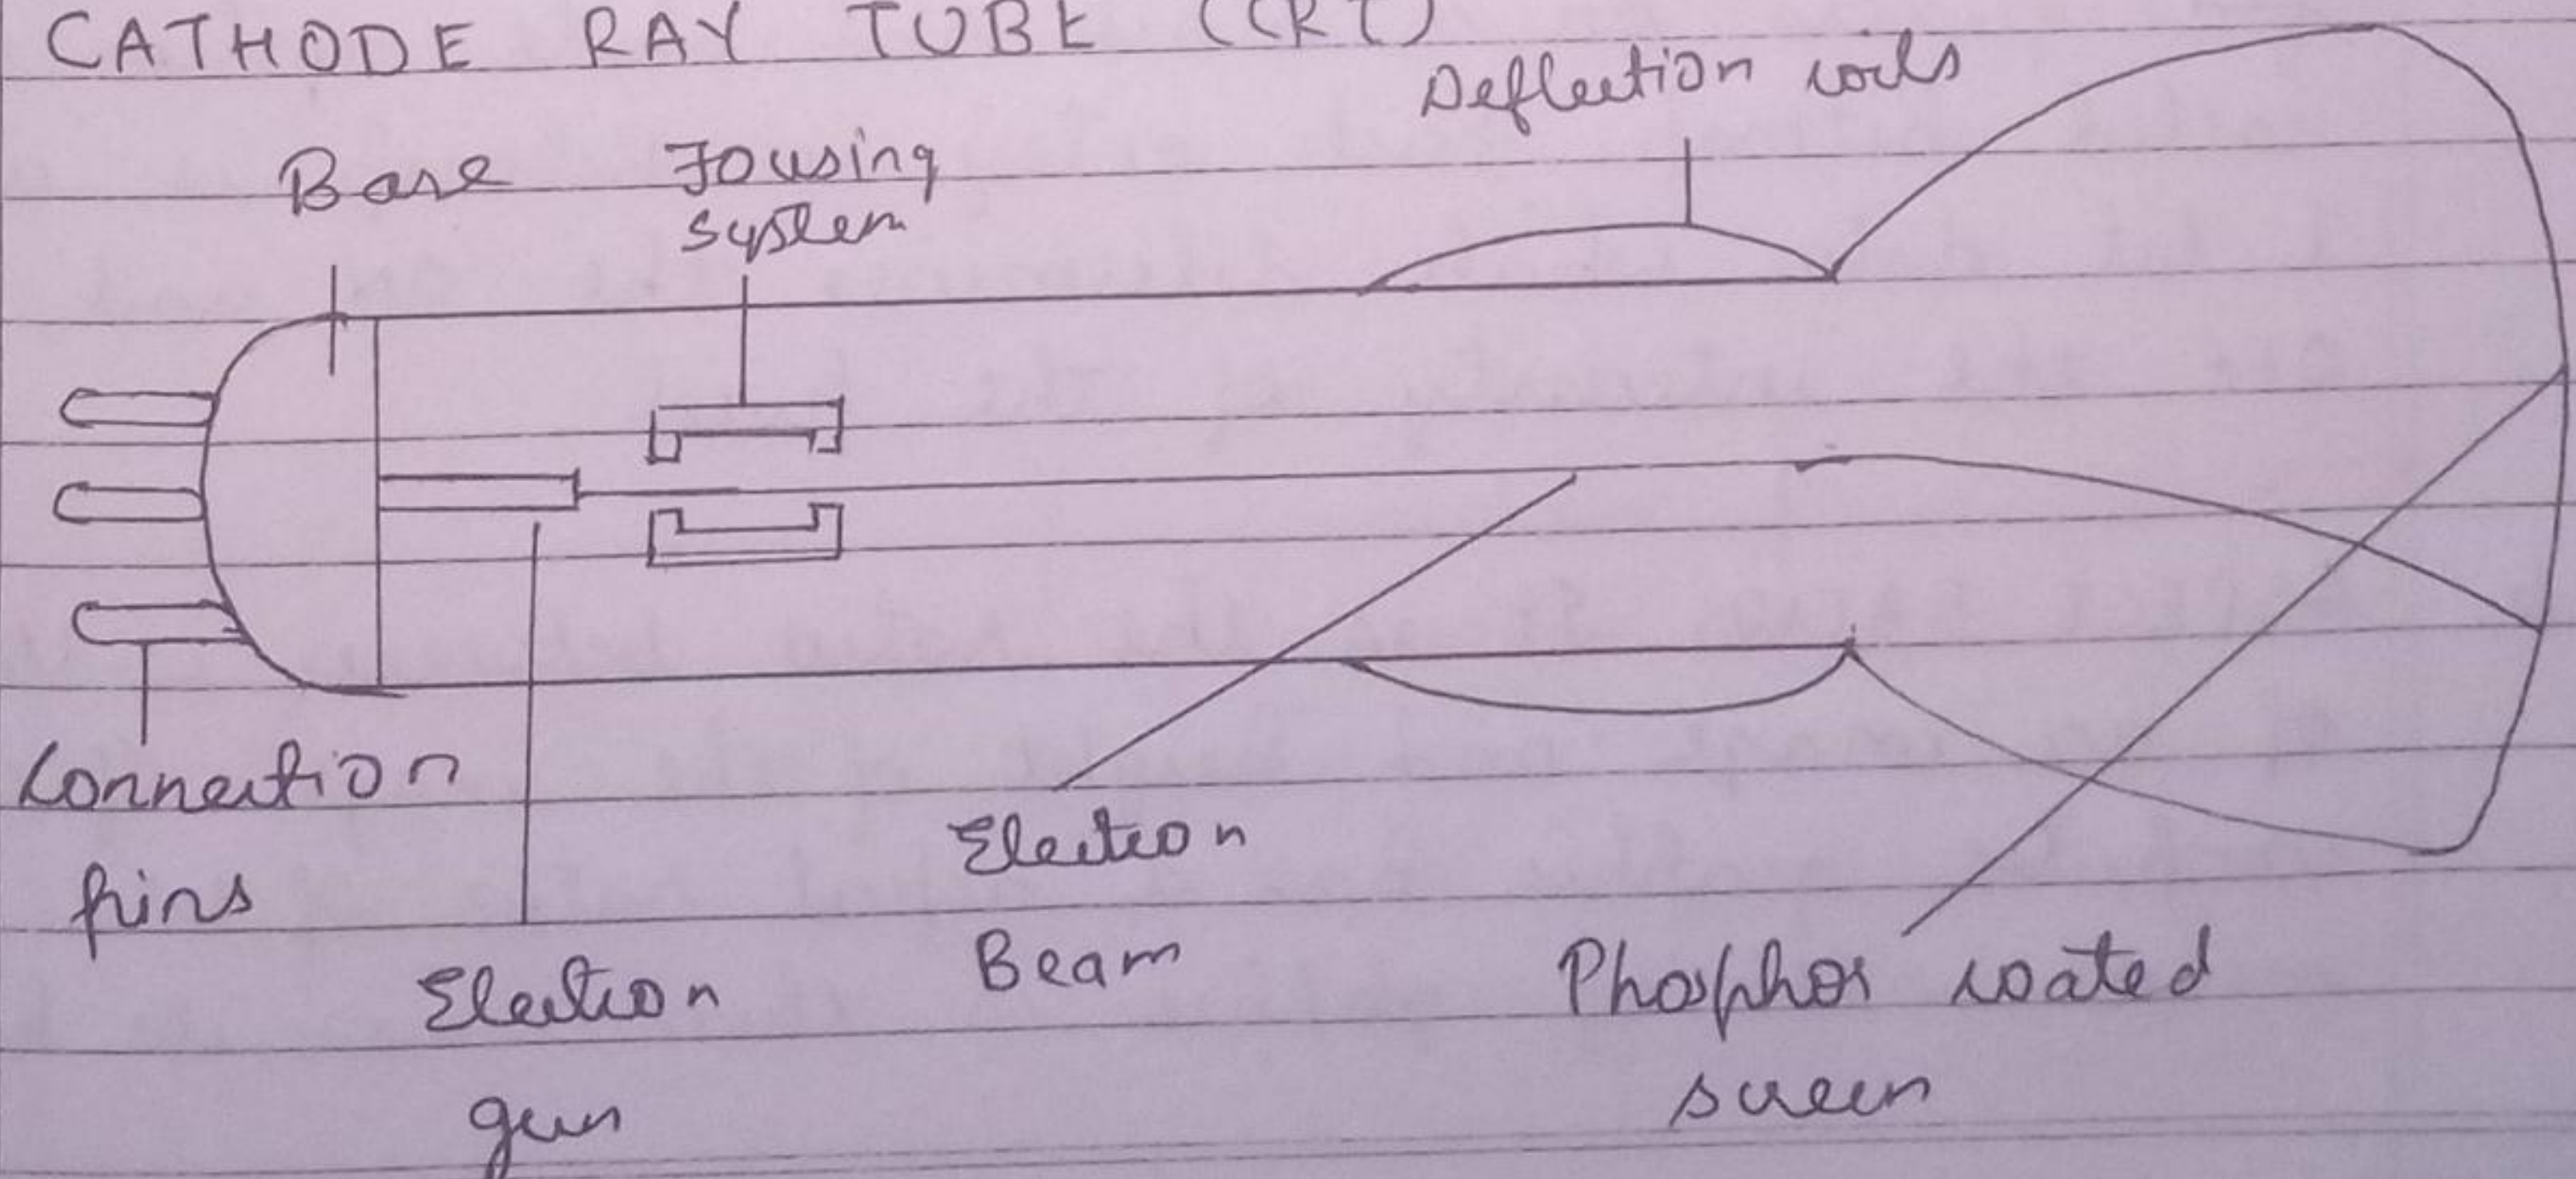 CATHODE RAY TUBE (CRT)
Deflection coils
Base
Focusing
system
Connection
pins
Electron
gun
Electron
Beam
Phosphor coated
screen